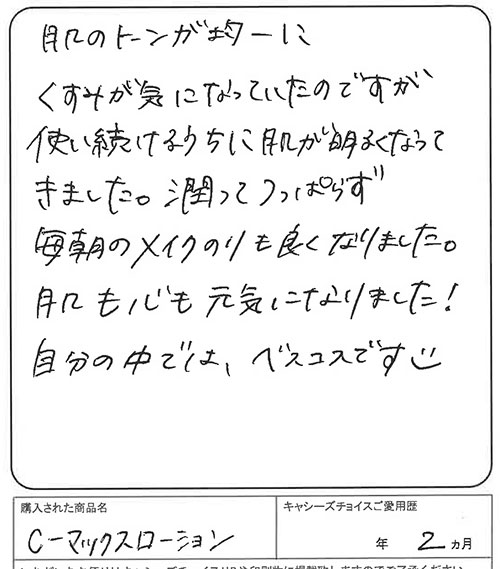 肌のトーンが均一に
くすみが気になっていたのですが
使い続けるうちに肌が明るくなって
きました。潤ってつっぱらず
毎朝のメイクのりも良くなりました。
肌も心も元気になりました!
自分の中では、ベスコスです
購入された商品名
キャシーズチョイスご愛用歴
C-マックスローション
年 2 ヵ月